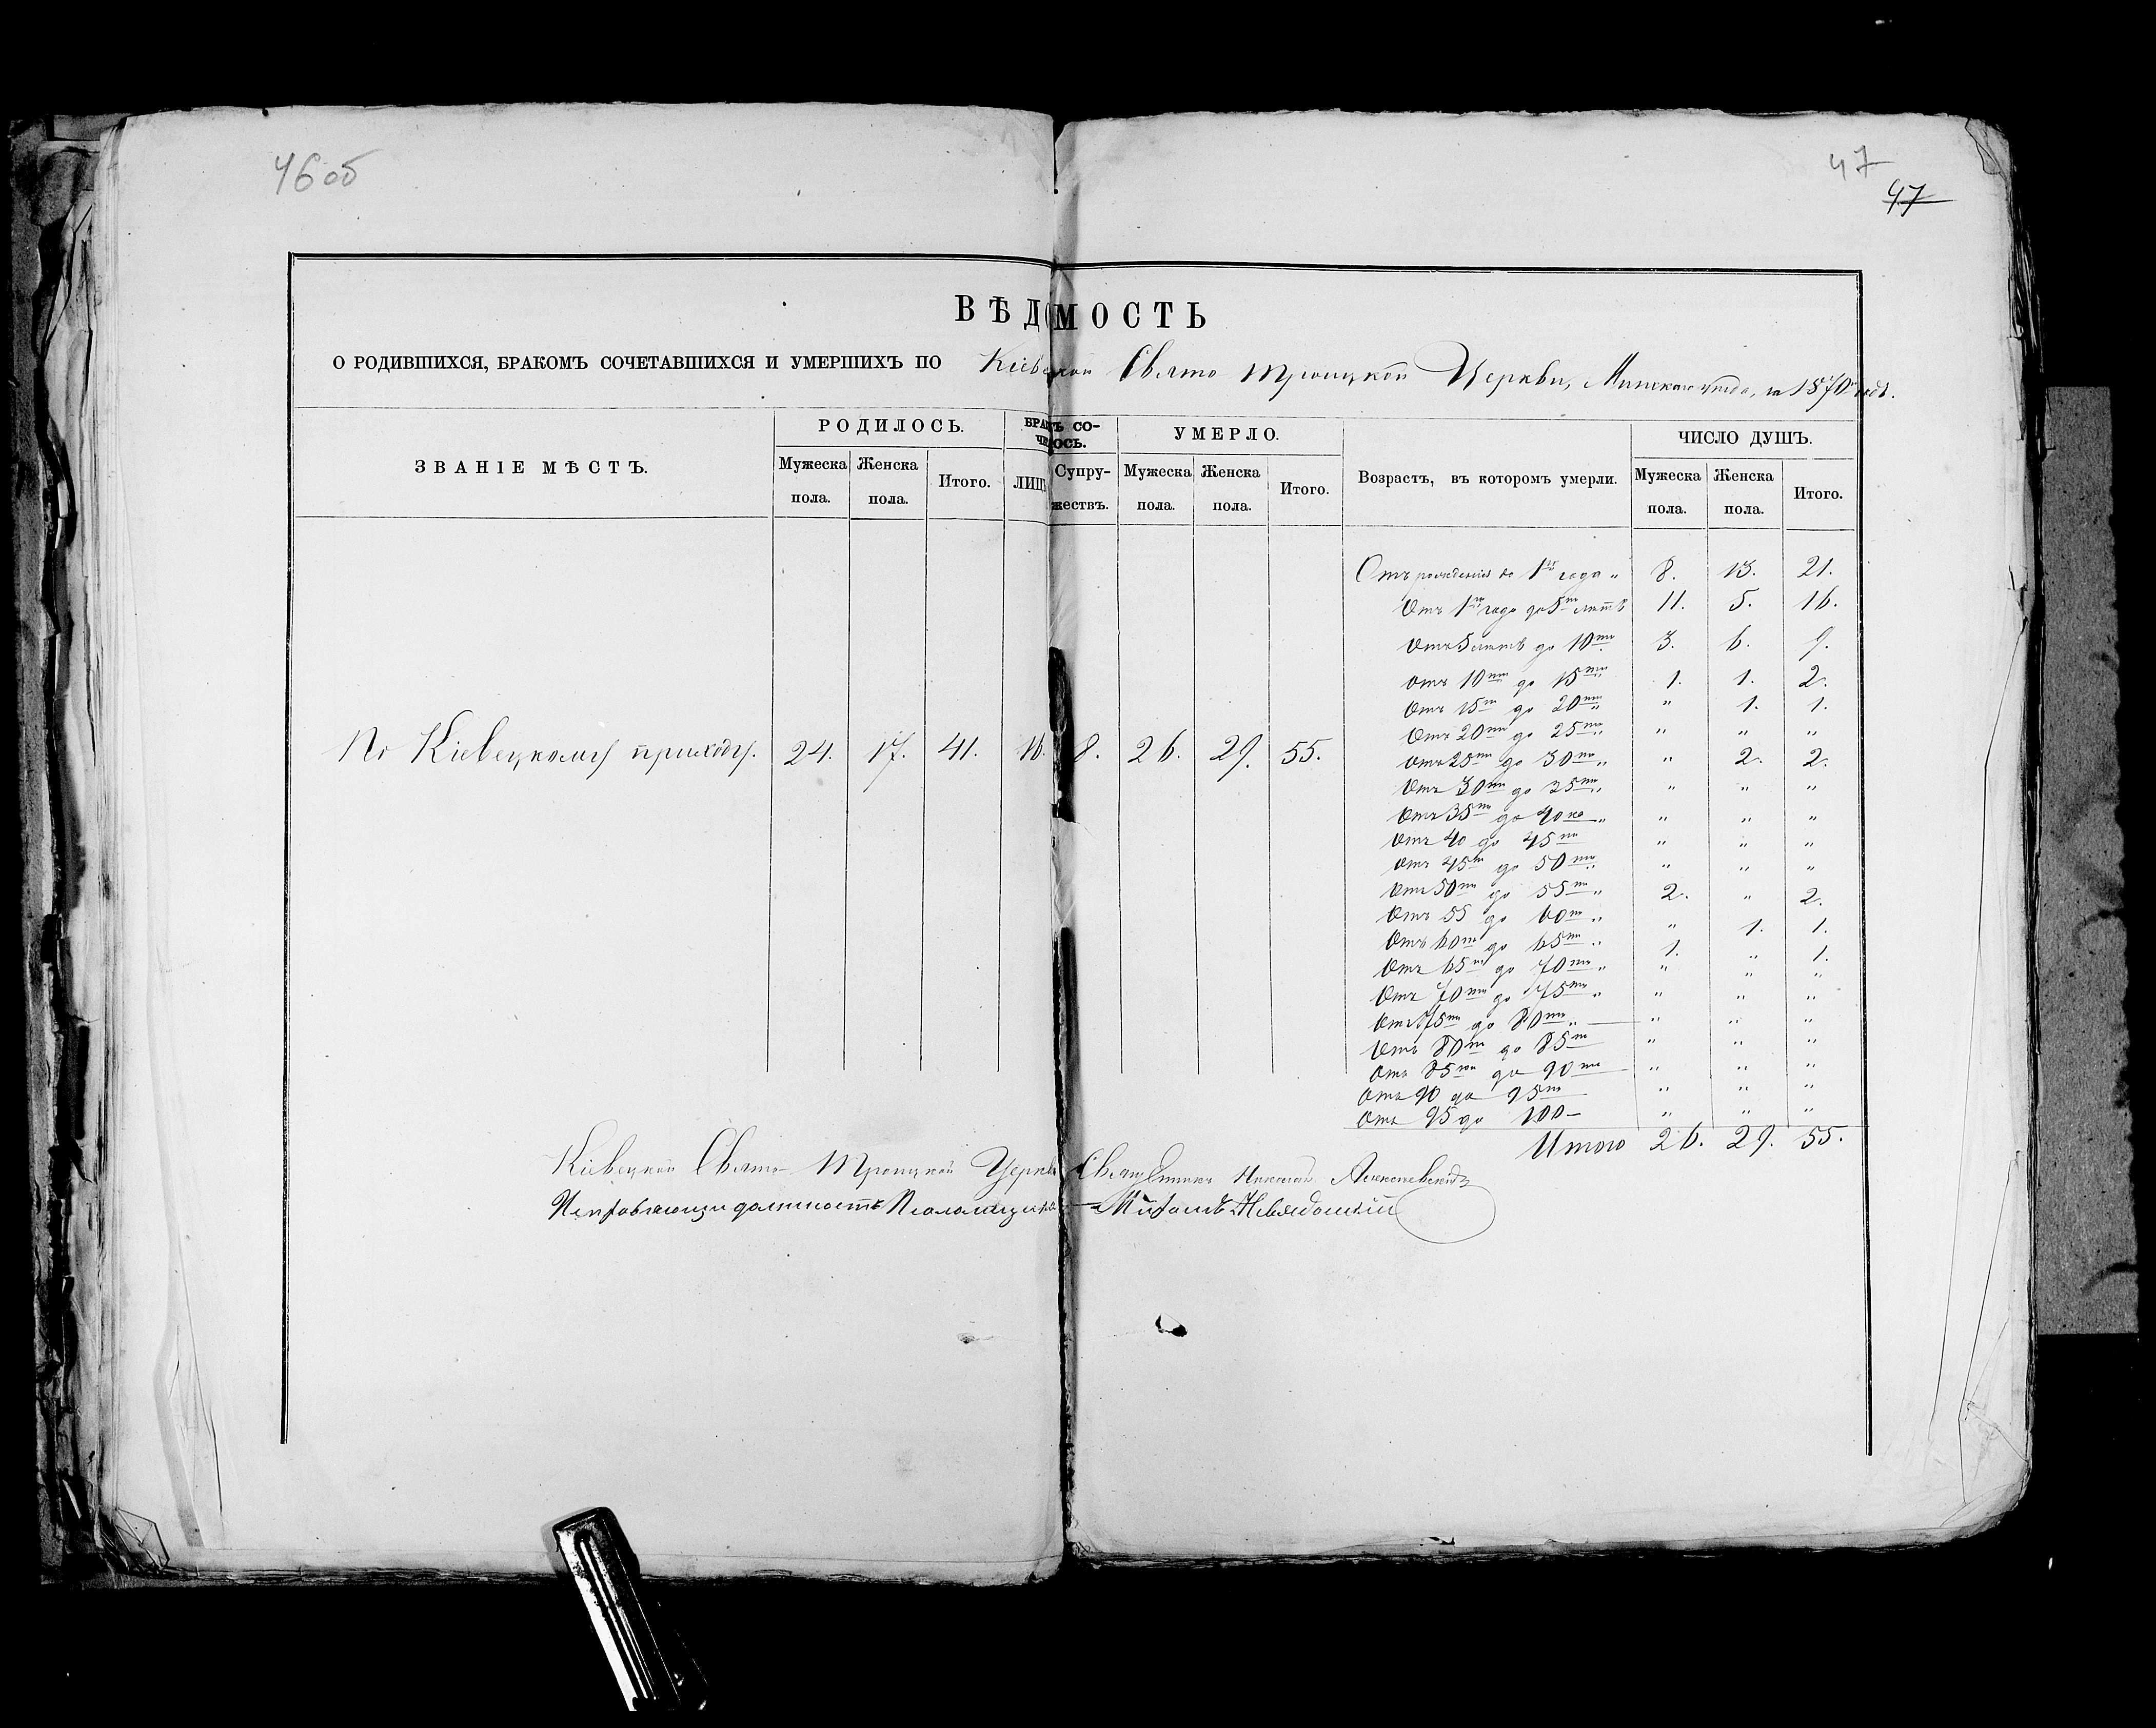 46 об
47
47
ВѢДОМОСТЬ
О РОДИВШИХСЯ, БРАКОМЪ СОЧЕТАВШИХСЯ И УМЕРШИХЪ ПО Кіевецкой Свято Троицкой Церкви, Минскаго уѣзда, за 1870й годъ.
ЗВАНІЕ МѢСТЪ. РОДИЛОСЬ. БРАКОМЪ СО- УМЕРЛО. Возрастъ, въ которомъ умерли. ЧИСЛО ДУШЪ.
ЧЕТАЛОСЬ.
Мужеска Женска Итого. ЛИЦЪ Супру- Мужеска Женска Итого. Мужеска Женска Итого.
пола. пола. жествъ. пола. пола. пола. пола.
Отъ рожденія до 1го года " 8. 13. 21.
Отъ 1го года до 5ти лѣтъ 11. 5. 16.
Отъ 5 лѣтъ до 10ти 3. 6. 9.
Отъ 10ти до 15ти " 1. 1. 2.
Отъ 15ти до 20ти " " 1. 1.
Отъ 20ти до 25ти " " " "
По Кіевецкому приходу. 24. 17. 41. 16. 8. 26. 29. 55.
Отъ 25ти до 30ти " " 2. 2.
Отъ 30ти до 35ти " " " "
Отъ 35ти до 40ка " " " "
Отъ 40 до 45ти " " "
Отъ 45ти до 50ти " " " "
Отъ 50ти до 55ти " 2. " 2.
Отъ 55 до 60ти " " 1. 1.
Отъ 60ти до 65ти " 1. " 1.
Отъ 65ти до 70ти " " " "
Отъ 70ти до 75ти " " " "
Отъ 75ти до 80ти " " " "
Отъ 80ти до 85ти " " "
Отъ 85ти до 90ти " " "
Отъ 90 до 95ти " " "
Отъ 95 до 100 " " "
Итого 26. 29. 55.
Кіевецкой Свято-Троицкой Церкви Священникъ Николай
Исправляющій должность Псаломщика